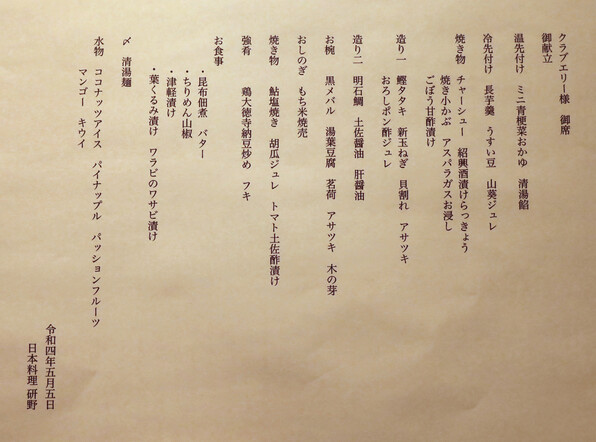 クラブエリー様　御席
御献立
温先付け　ミニ青梗菜おかゆ　清湯餡
冷先付け　長芋羹　うすい豆　山葵ジュレ
焼き物　チャーシュー　紹興酒漬けらっきょう
焼き小かぶ　アスパラガスお浸し
ごぼう甘酢漬け
造り一　鰹タタキ　新玉ねぎ　貝割れ　アサツキ
おろしポン酢ジュレ
造り二　明石鯛　土佐醤油　肝醤油
お椀　黒メバル　湯葉豆腐　茗荷　アサツキ　木の芽
おしのぎ　もち米焼売
焼き物　鮎塩焼き　胡瓜ジュレ　トマト土佐酢漬け
強肴　鶏大徳寺納豆炒め　フキ
お食事
・昆布佃煮　バター
・ちりめん山椒
・津軽漬け
・葉くるみ漬け　ワラビのワサビ漬け
〆　清湯麺
水物　ココナッツアイス　パイナップル　パッションフルーツ
マンゴー　キウイ
令和四年五月五日
日本料理 研野